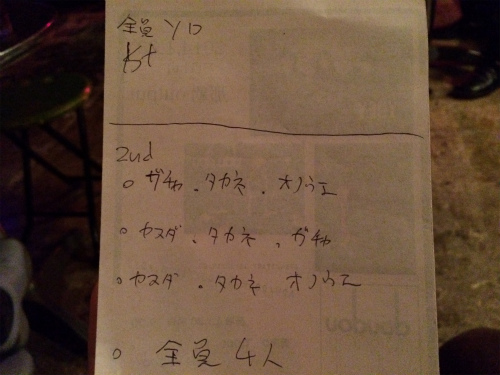 全員ソロ
1st
2nd
○ ガチャ、タカネ、オノウエ
○ ヤスダ、タカネ、ガチャ
○ ヤスダ、タカネ オノウエ
○ 全員4人
doudou